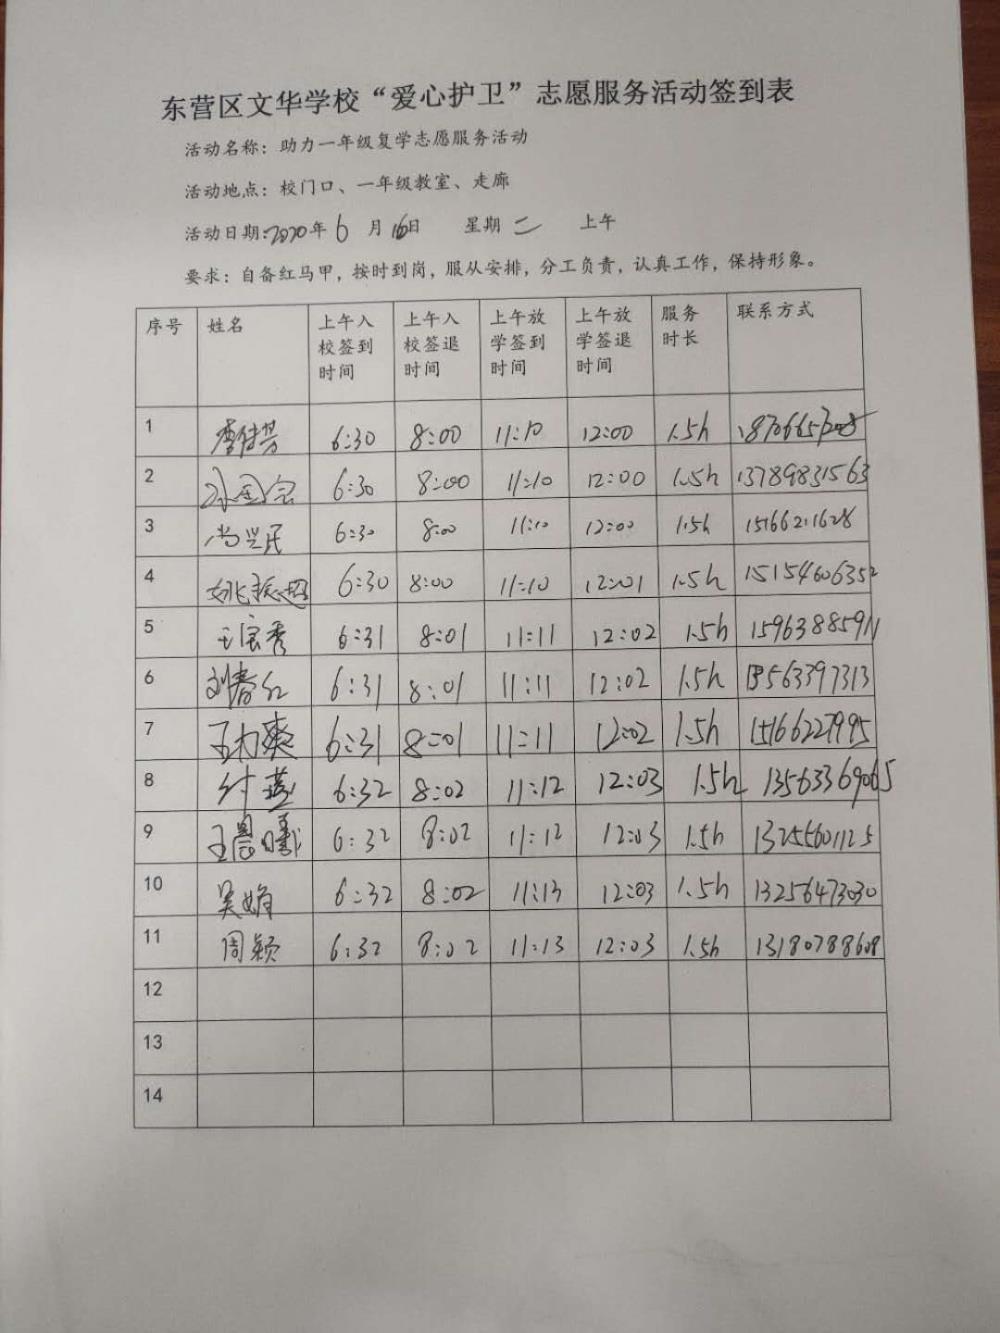 东营区文华学校“爱心护卫”志愿服务活动签到表
活动名称：助力一年级复学志愿服务活动
活动地点：校门口、一年级教室、走廊
活动日期：2020年6月16日 星期二 上午
要求：自备红马甲，按时到岗，服从安排，分工负责，认真工作，保持形象。
序号 姓名 上午入校签到时间 上午入校签退时间 上午放学签到时间 上午放学签退时间 服务时长 联系方式
1 6:30 8:00 11:10 12:00 1.5h
2 6:30 8:00 11:10 12:00 1.5h 13789831563
3 尚兴民 6:30 8:00 11:10 12:00 1.5h 15166211628
4 6:30 8:00 11:10 12:01 1.5h 15154606352
5 王宗秀 6:31 8:01 11:11 12:02 1.5h
6 刘春红 6:31 8:01 11:11 12:02 1.5h
7 王力爽 6:31 8:01 11:11 12:02 1.5h 15166227995
8 付莲 6:32 8:02 11:12 12:03 1.5h 13563369065
9 王晨曦 6:32 8:02 11:12 12:03 1.5h 13255601125
10 吴娟 6:32 8:02 11:13 12:03 1.5h 13256473030
11 周颖 6:32 8:02 11:13 12:03 1.5h 13180788608
12
13
14